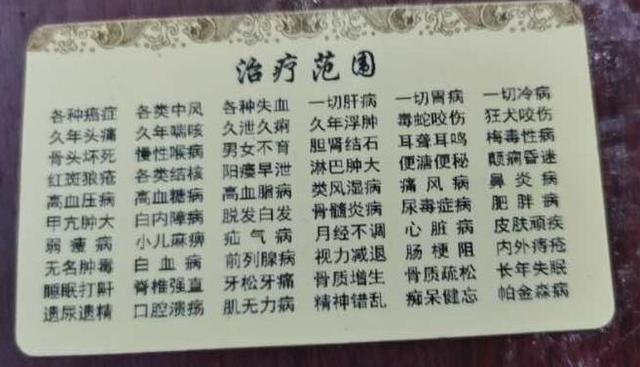 治疗范围
各种癌症 各类中风 各种失血 一切肝病 一切胃病 一切冷病
久年头痛 久年喘咳 久泄久痢 久年浮肿 毒蛇咬伤 狂犬咬伤
骨头坏死 慢性喉病 男女不育 胆肾结石 耳聋耳鸣 梅毒性病
红斑狼疮 各类结核 阳痿早泄 淋巴肿大 便溏便秘 颠痫昏迷
高血压病 高血糖病 高血脂病 类风湿病 痛风病 鼻炎病
甲亢肿大 白内障病 脱发白发 骨髓炎病 尿毒症病 肥胖病
弱瘦病 小儿麻痹 疝气病 月经不调 心脏病 皮肤顽疾
无名肿毒 白血病 前列腺病 视力减退 肠梗阻 内外痔疮
睡眠打鼾 脊椎强直 牙松牙痛 骨质增生 骨质疏松 长年失眠
遗尿遗精 口腔溃疡 肌无力病 精神错乱 痴呆健忘 帕金森病